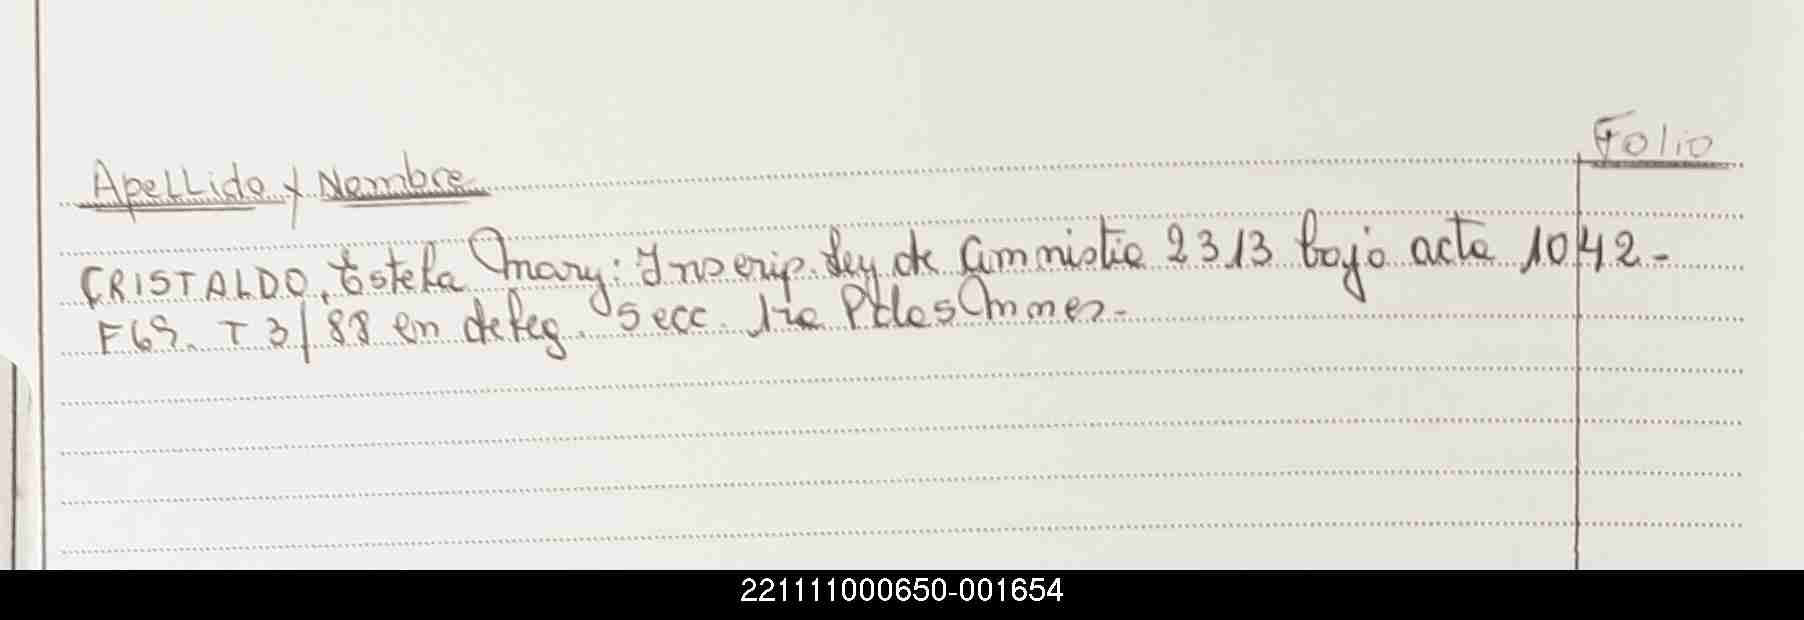 Folio
Apellido y Nombre
CRISTALDO, Estela Mary: Inscrip. Ley de Amnistia 2313 bajo acta 1042-
F69. T3/88 en deleg. Secc. 1ra Pdlas Mnes.-
221111000650-001654